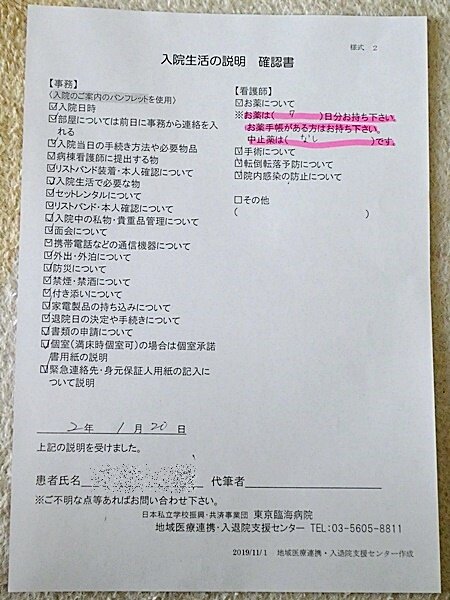 様式 2
入院生活の説明 確認書
【事務】
〈入院のご案内のパンフレットを使用〉
☑入院日時
☑部屋については前日に事務から連絡を入
れる
☑入院当日の手続き方法や必要物品
☑病棟看護師に提出する物
☑リストバンド装着・本人確認について
☑入院生活で必要な物
☑セットレンタルについて
☑リストバンド・本人確認について
☑入院中の私物・貴重品管理について
☑面会について
☑携帯電話などの通信機器について
☑外出・外泊について
☑防災について
☑禁煙・禁酒について
☑付き添いについて
☑家電製品の持ち込みについて
☑退院日の決定や手続きについて
☑書類の申請について
☑個室(満床時個室可)の場合は個室承諾
書用紙の説明
☑緊急連絡先・身元保証人用紙の記入に
ついて説明
【看護師】
☑お薬について
※お薬は( 7 )日分お持ち下さい。
お薬手帳がある方はお持ち下さい。
中止薬は( なし )です。
☑手術について
☑転倒転落予防について
☑院内感染の防止について
□その他
( )
2年 1月 20日
上記の説明を受けました。
患者氏名 代筆者
※ご不明な点等あればお問い合わせ下さい。
日本私立学校振興・共済事業団 東京臨海病院
地域医療連携・入退院支援センター TEL:03-5605-8811
2019/11/1 地域医療連携・入退院支援センター作成